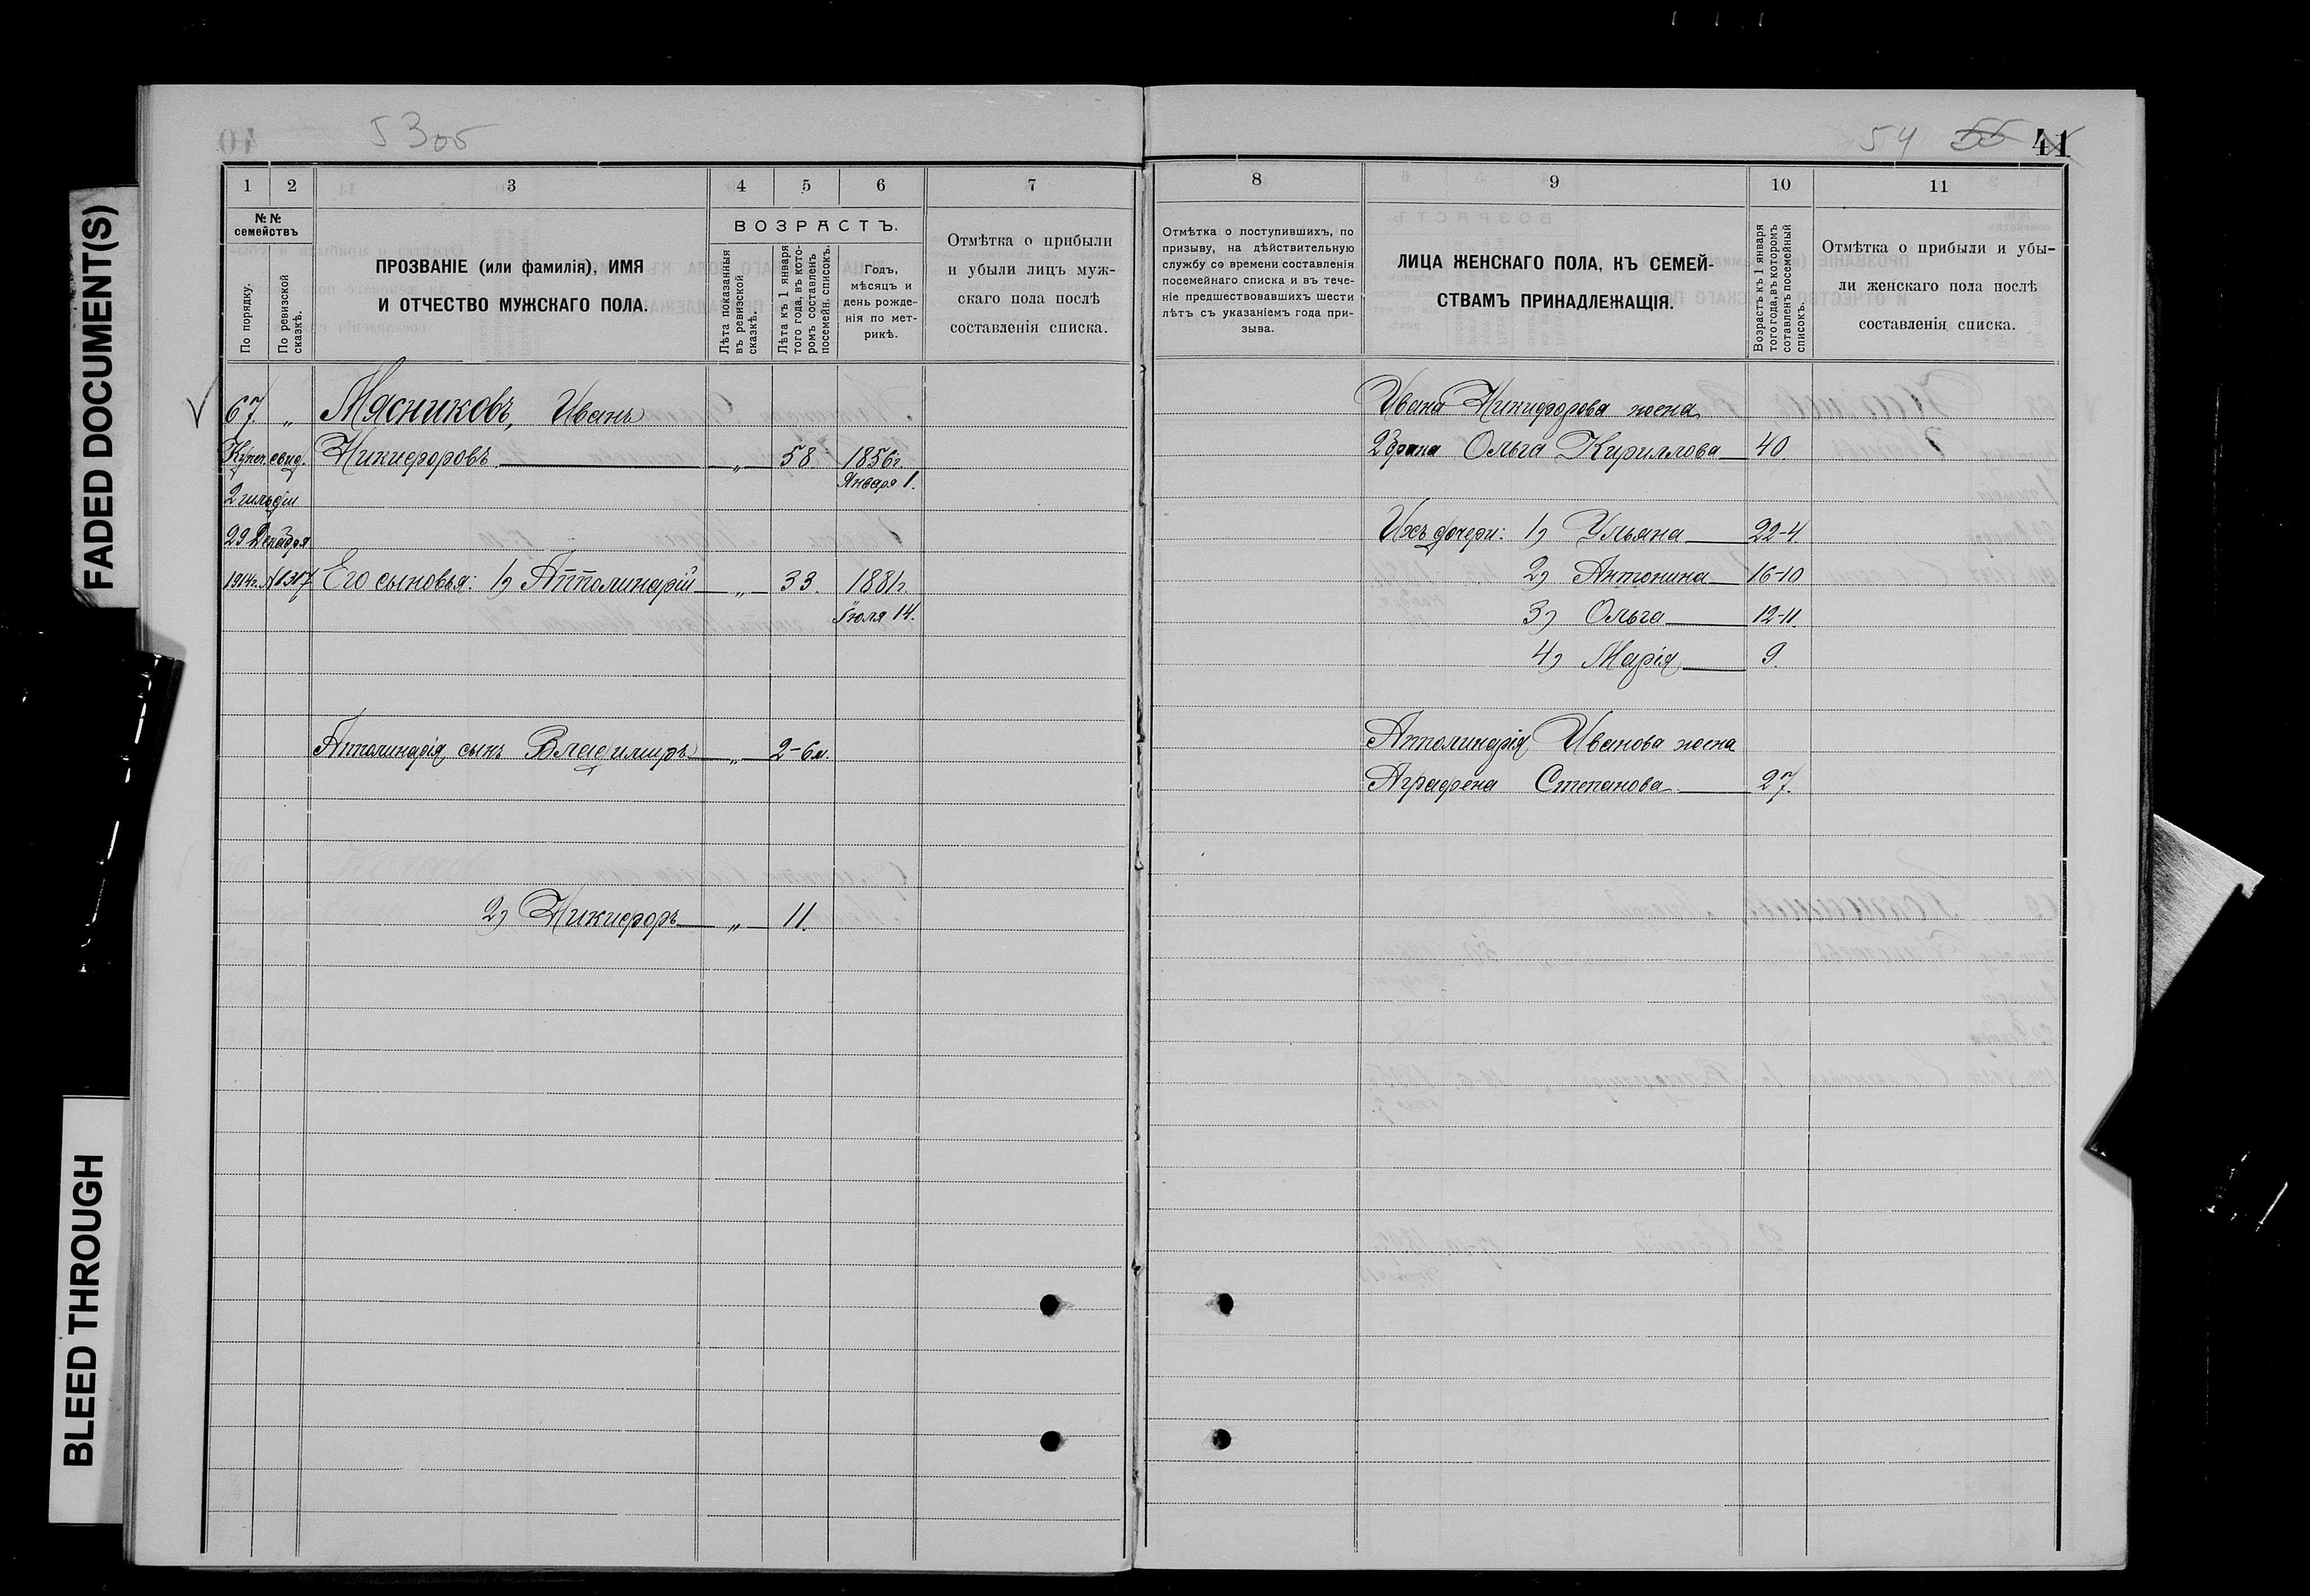 FADED DOCUMENT(S)
BLEED THROUGH
53об
1 2 3 4 5 6 7
№№ семействъ
По порядку.
По ревизской сказкѣ.
ПРОЗВАНІЕ (или фамилія), ИМЯ
И ОТЧЕСТВО МУЖСКАГО ПОЛА.
ВОЗРАСТЪ.
Лѣта показанныя въ ревизской сказкѣ.
Лѣта къ 1 января того года, въ кото-ромъ составленъ посемейн. списокъ.
Годъ,
мѣсяцъ и
день рожде-
нія по мет-
рикѣ.
Отмѣтка о прибыли
и убыли лицъ муж-
скаго пола послѣ
составленія списка.
67. „ Мясниковъ, Иванъ
Купеч. свид. Никифоровъ „ 58 1856г.
Января 1.
2 гильдіи
29 Декабря
1914г. №1307 Его сыновья: 1) Апполинарій „ 33. 1881г.
Іюля 14.
Апполинарія сынъ Владимиръ „ 2-6м.
2) Никифоръ „ 11.
54 55 41
8 9 10 11
Отмѣтка о поступившихъ, по
призыву, на дѣйствительную
службу со времени составленія
посемейнаго списка и въ тече-
ніе предшествовавшихъ шести
лѣтъ съ указаніемъ года при-
зыва.
ЛИЦА ЖЕНСКАГО ПОЛА, КЪ СЕМЕЙ-
СТВАМЪ ПРИНАДЛЕЖАЩІЯ.
Возрастъ къ 1 января
того года, въ которомъ
сотавленъ посемейный
списокъ.
Отмѣтка о прибыли и убы-
ли женскаго пола послѣ
составленія списка.
Ивана Никифорова жена
2 брака Ольга Кириллова 40.
Ихъ дочери: 1) Ульяна 22-4.
2) Антонина 16-10
3) Ольга 12-11.
4) Марія 9.
Апполинарія Иванова жена
Аграфена Степанова 27.